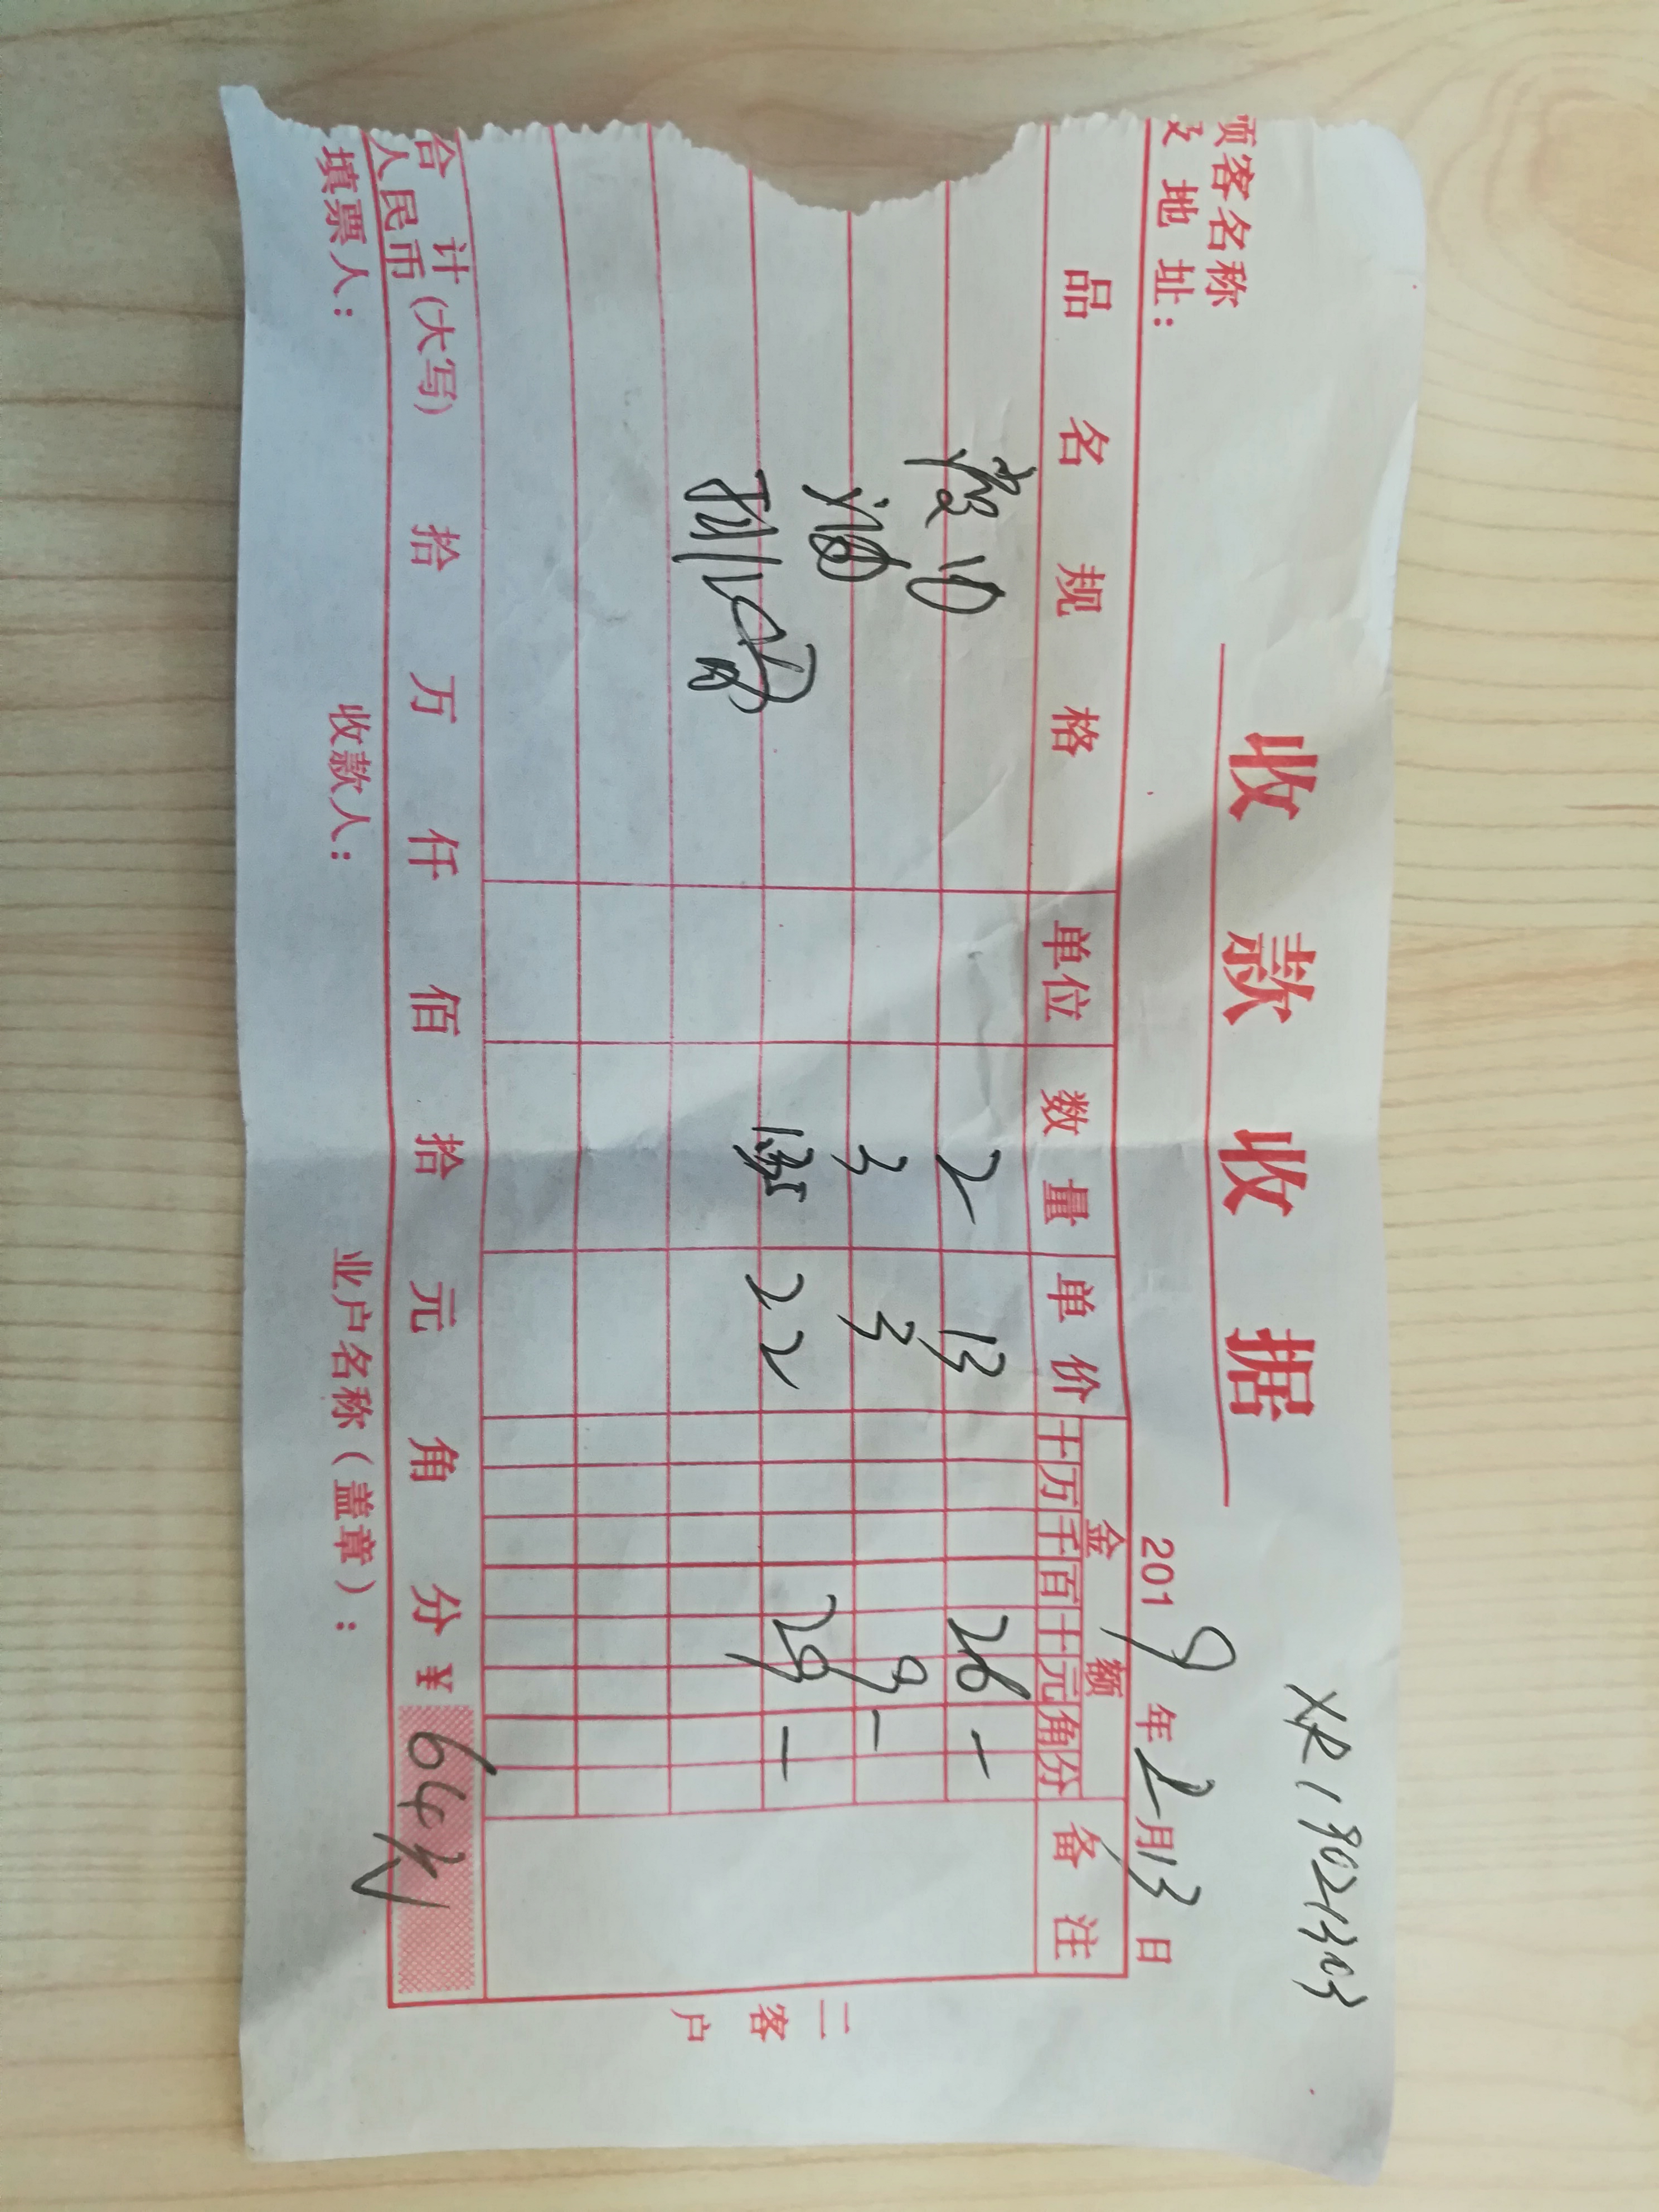 XR19021303
收款收据
顾客名称
及地址：
2019年2月13日
品名规格 单位 数量 单价 金额 备注
十万千百十元角分
2 13 26 -
油 3 3 9 -
排骨 22 29 -
二客户
合计
人民币
(大写) 拾 万 仟 佰 拾 元 角 分 ¥ 64元
填票人： 收款人： 业户名称（盖章）：